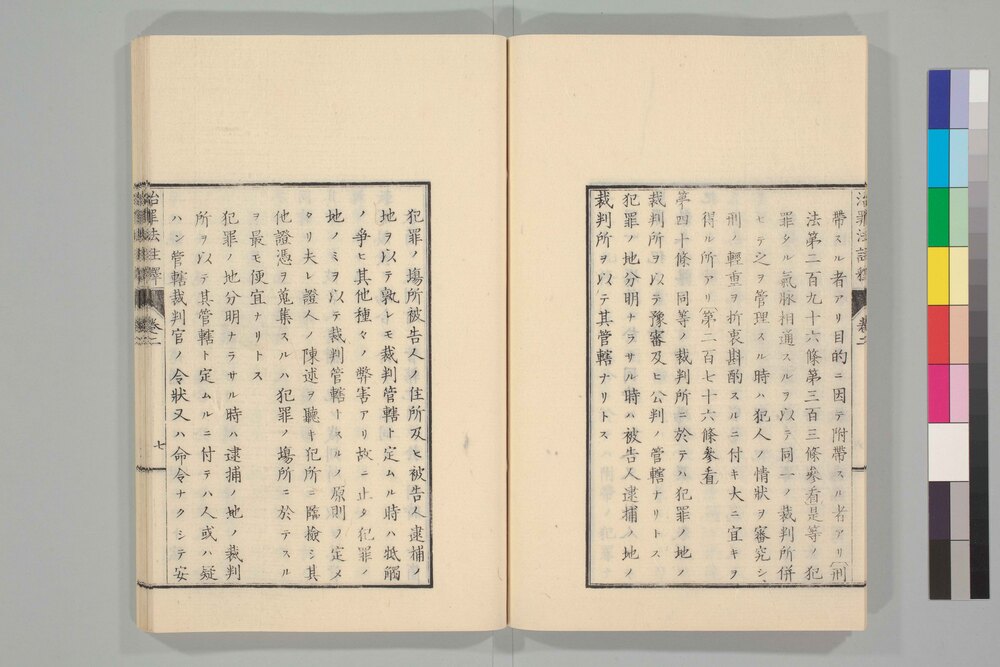 帶スル者アリ目的ニ因テ附帶スル者アリ(刑
法第二百九十六條第三百三條參看是等ノ犯
罪タル氣脉相通スルヲ以テ同一ノ裁判所併
セテ之ヲ管理スル時ハ犯人ノ情狀ヲ審究シ、
刑ノ輕重ヲ折衷斟酌スルニ付キ大ニ宜キヲ
得ル所アリ(第二百七十六條參看
第四十條 同等ノ裁判所ニ於テハ犯罪ノ地ノ
裁判所ヲ以テ豫審及ヒ公判ノ管轄ナリトス
犯罪ノ地分明ナラサル時ハ被告人逮捕ノ地ノ
裁判所ヲ以テ其管轄ナリトス
治罪法註釋 卷之二
犯罪ノ塲所被告人ノ住所及ヒ被告人逮捕ノ
地ヲ以テ孰レモ裁判管轄ト定ムル時ハ牴觸
ノ爭ヒ其他種々ノ弊害アリ故ニ止タ犯罪ノ
地ノミヲ以テ裁判管轄トスルノ原則ヲ定メ
タリ夫レ證人ノ陳述ヲ聽キ犯所ニ臨檢シ其
他證憑ヲ蒐集スルハ犯罪ノ塲所ニ於テスル
ヲ最モ便宜ナリトス
犯罪ノ地分明ナラサル時ハ逮捕ノ地ノ裁判
所ヲ以テ其管轄ト定ムルニ付テハ人或ハ疑
ハン管轄裁判官ノ令狀又ハ命令ナクシテ安
治罪法註釋 卷之二 七